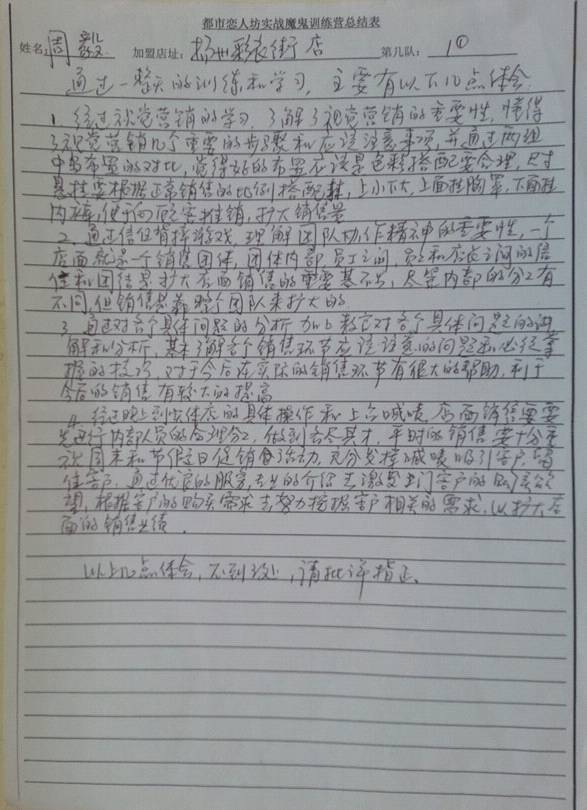 都市恋人坊实战魔鬼训练营总结表
姓名：周毅 加盟店址：扬州彩衣街店 第几队：1①
通过一整天的训练和学习，主要有以下几点体会
1. 经过视觉营销的学习，了解了视觉营销的重要性，懂得
了视觉营销几个重要的步骤和应该注意事项，并通过两组
中岛布置的对比，觉得好的布置应该是色彩搭配要合理，尺寸
悬挂要根据正常销售的比例搭配，上小下大，上面挂胸罩，下面挂
内裤，便于向顾客推销，扩大销售量
2. 通过信任背摔游戏，理解团队协作精神的重要性，一个
店面就是一个销售团体，团体内部员工之间，员工和店长之间的信
任和团结是扩大店面销售的重要基石，尽管内部的分工有
不同，但销售是靠整个团队来扩大的
3. 通过对各个具体问题的分析加上教官对各个具体问题的讲
解和分析，基本了解各个销售环节应该注意的问题和必须掌
握的技巧，对于今后在实际的销售环节有很大的帮助，利于
今后的销售有较大的提高
4. 经过晚上到实体店的具体操作和上台喊唛，店面销售要
先进行内部人员的合理分工，做到各尽其才，平时的销售要十分
周末和节假日促销活动，充分发挥喊唛吸引客户，留
住客户，通过优良的服务，专业的介绍去激发上门客户的购买欲
望，根据客户的购买需求去努力挖掘客户相关的需求，以扩大店
面的销售业绩
以上几点体会，不到之处，请批评指正。